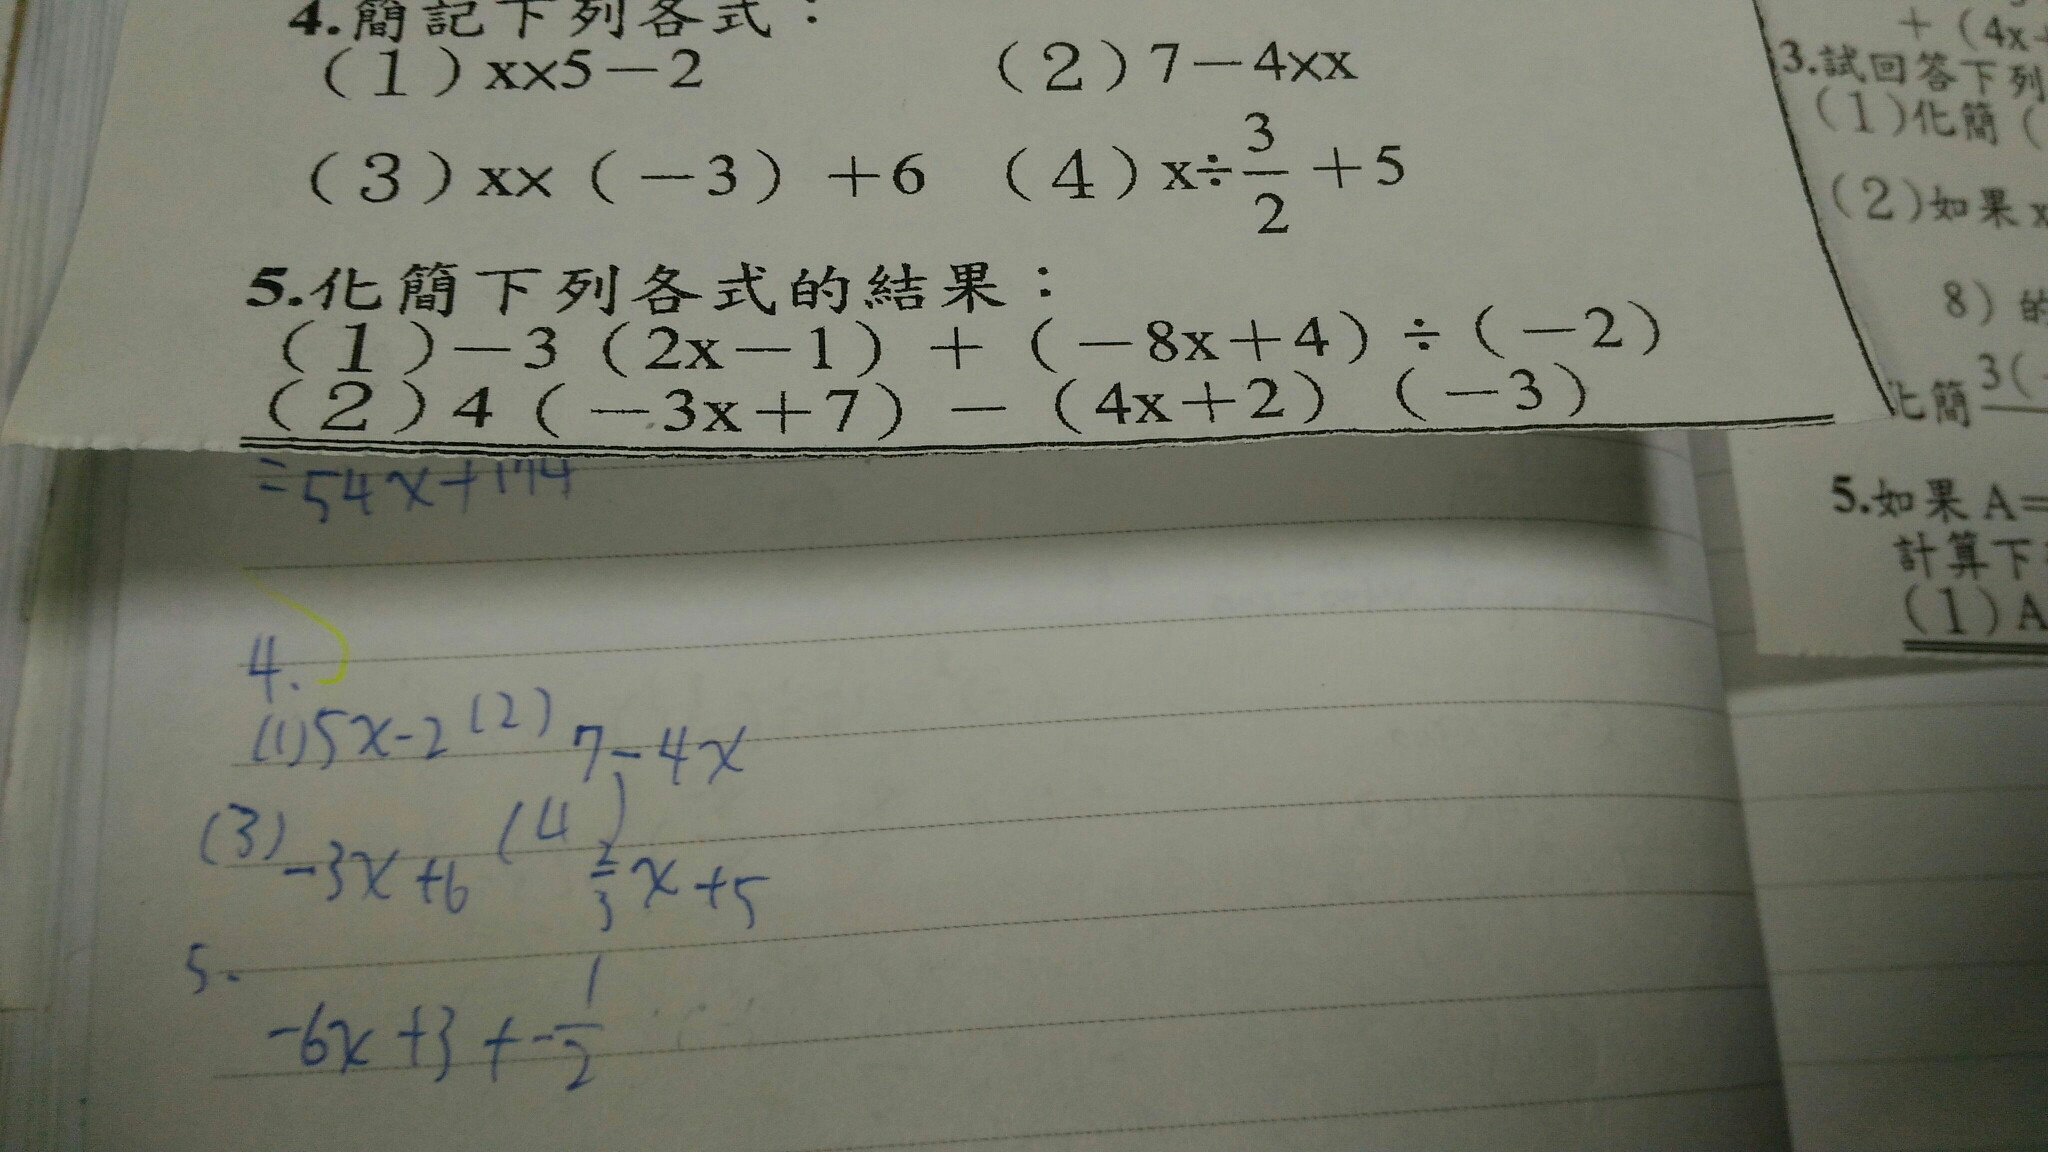 4.簡記下列各式：
（1）x×5－2 （2）7－4×x
（3）x×（－3）＋6 （4）x÷3/2＋5
5.化簡下列各式的結果：
（1）－3（2x－1）＋（－8x＋4）÷（－2）
（2）4（－3x＋7）－（4x＋2）（－3）
=54x+174
4.
(1)5x-2 (2) 7-4x
(3) -3x+6 (4) 2/3x+5
5.
-6x+3+-1/2
＋（4x
3.試回答下列
（1）化簡（
（2）如果 x
8）的
化簡 3(
5.如果 A=
計算下
（1）A